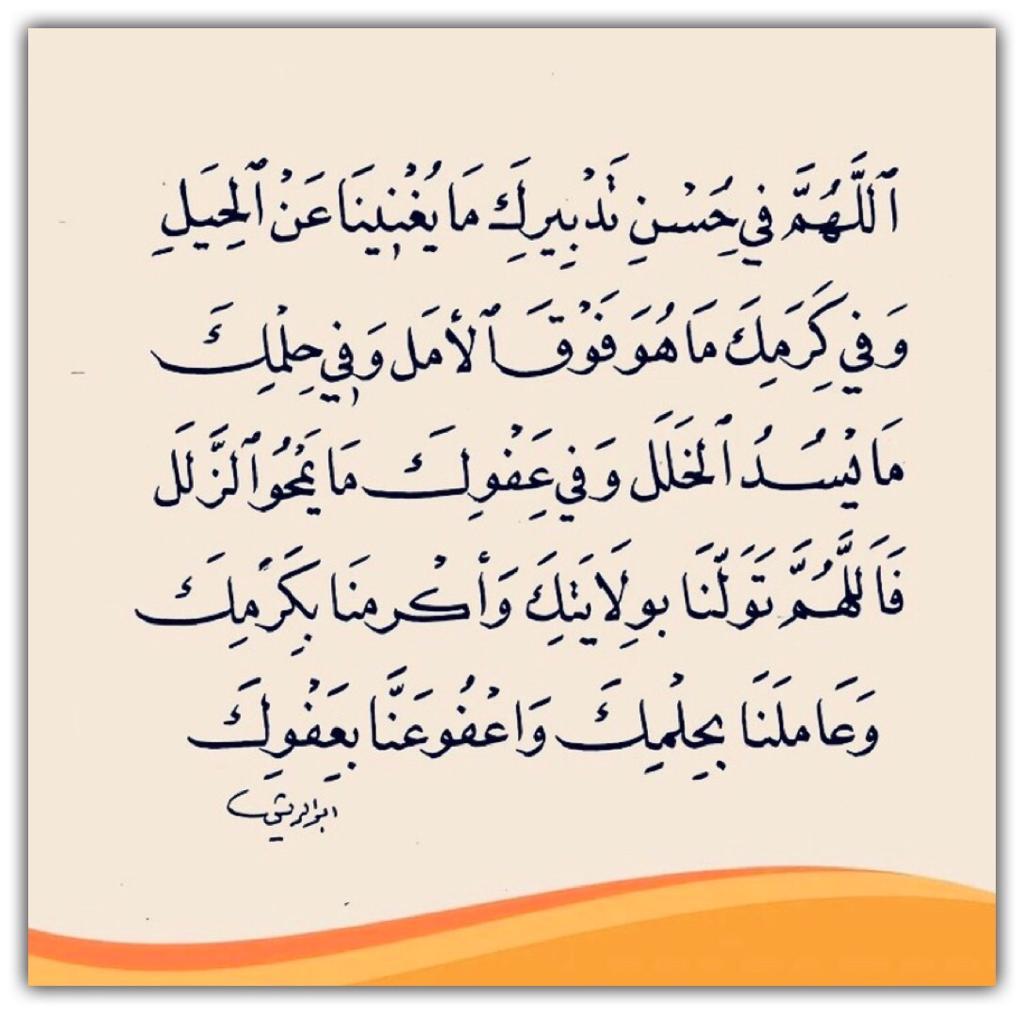 ٱللَّهُمَّ فِي حُسْنِ تَدْبِيرِكَ مَا يُغْنِينَا عَنْ ٱلْحِيَلِ
وَفِي كَرَمِكَ مَا هُوَ فَوْقَ ٱلأمَل وَفِي حِلْمِكَ
مَا يَسُدُ ٱلْخَلَل وَفِي عَفْوِكَ مَا يَمْحُو ٱلزَّلَل
فَاللَّهُمَّ تَوَلَّنَا بِوِلَايَتِكَ وَأكْرِمنَا بِكَرَمِكَ
وَعَامِلنَا بِحِلْمِكَ وَاعْفُو عَنَّا بِعَفْوِكَ